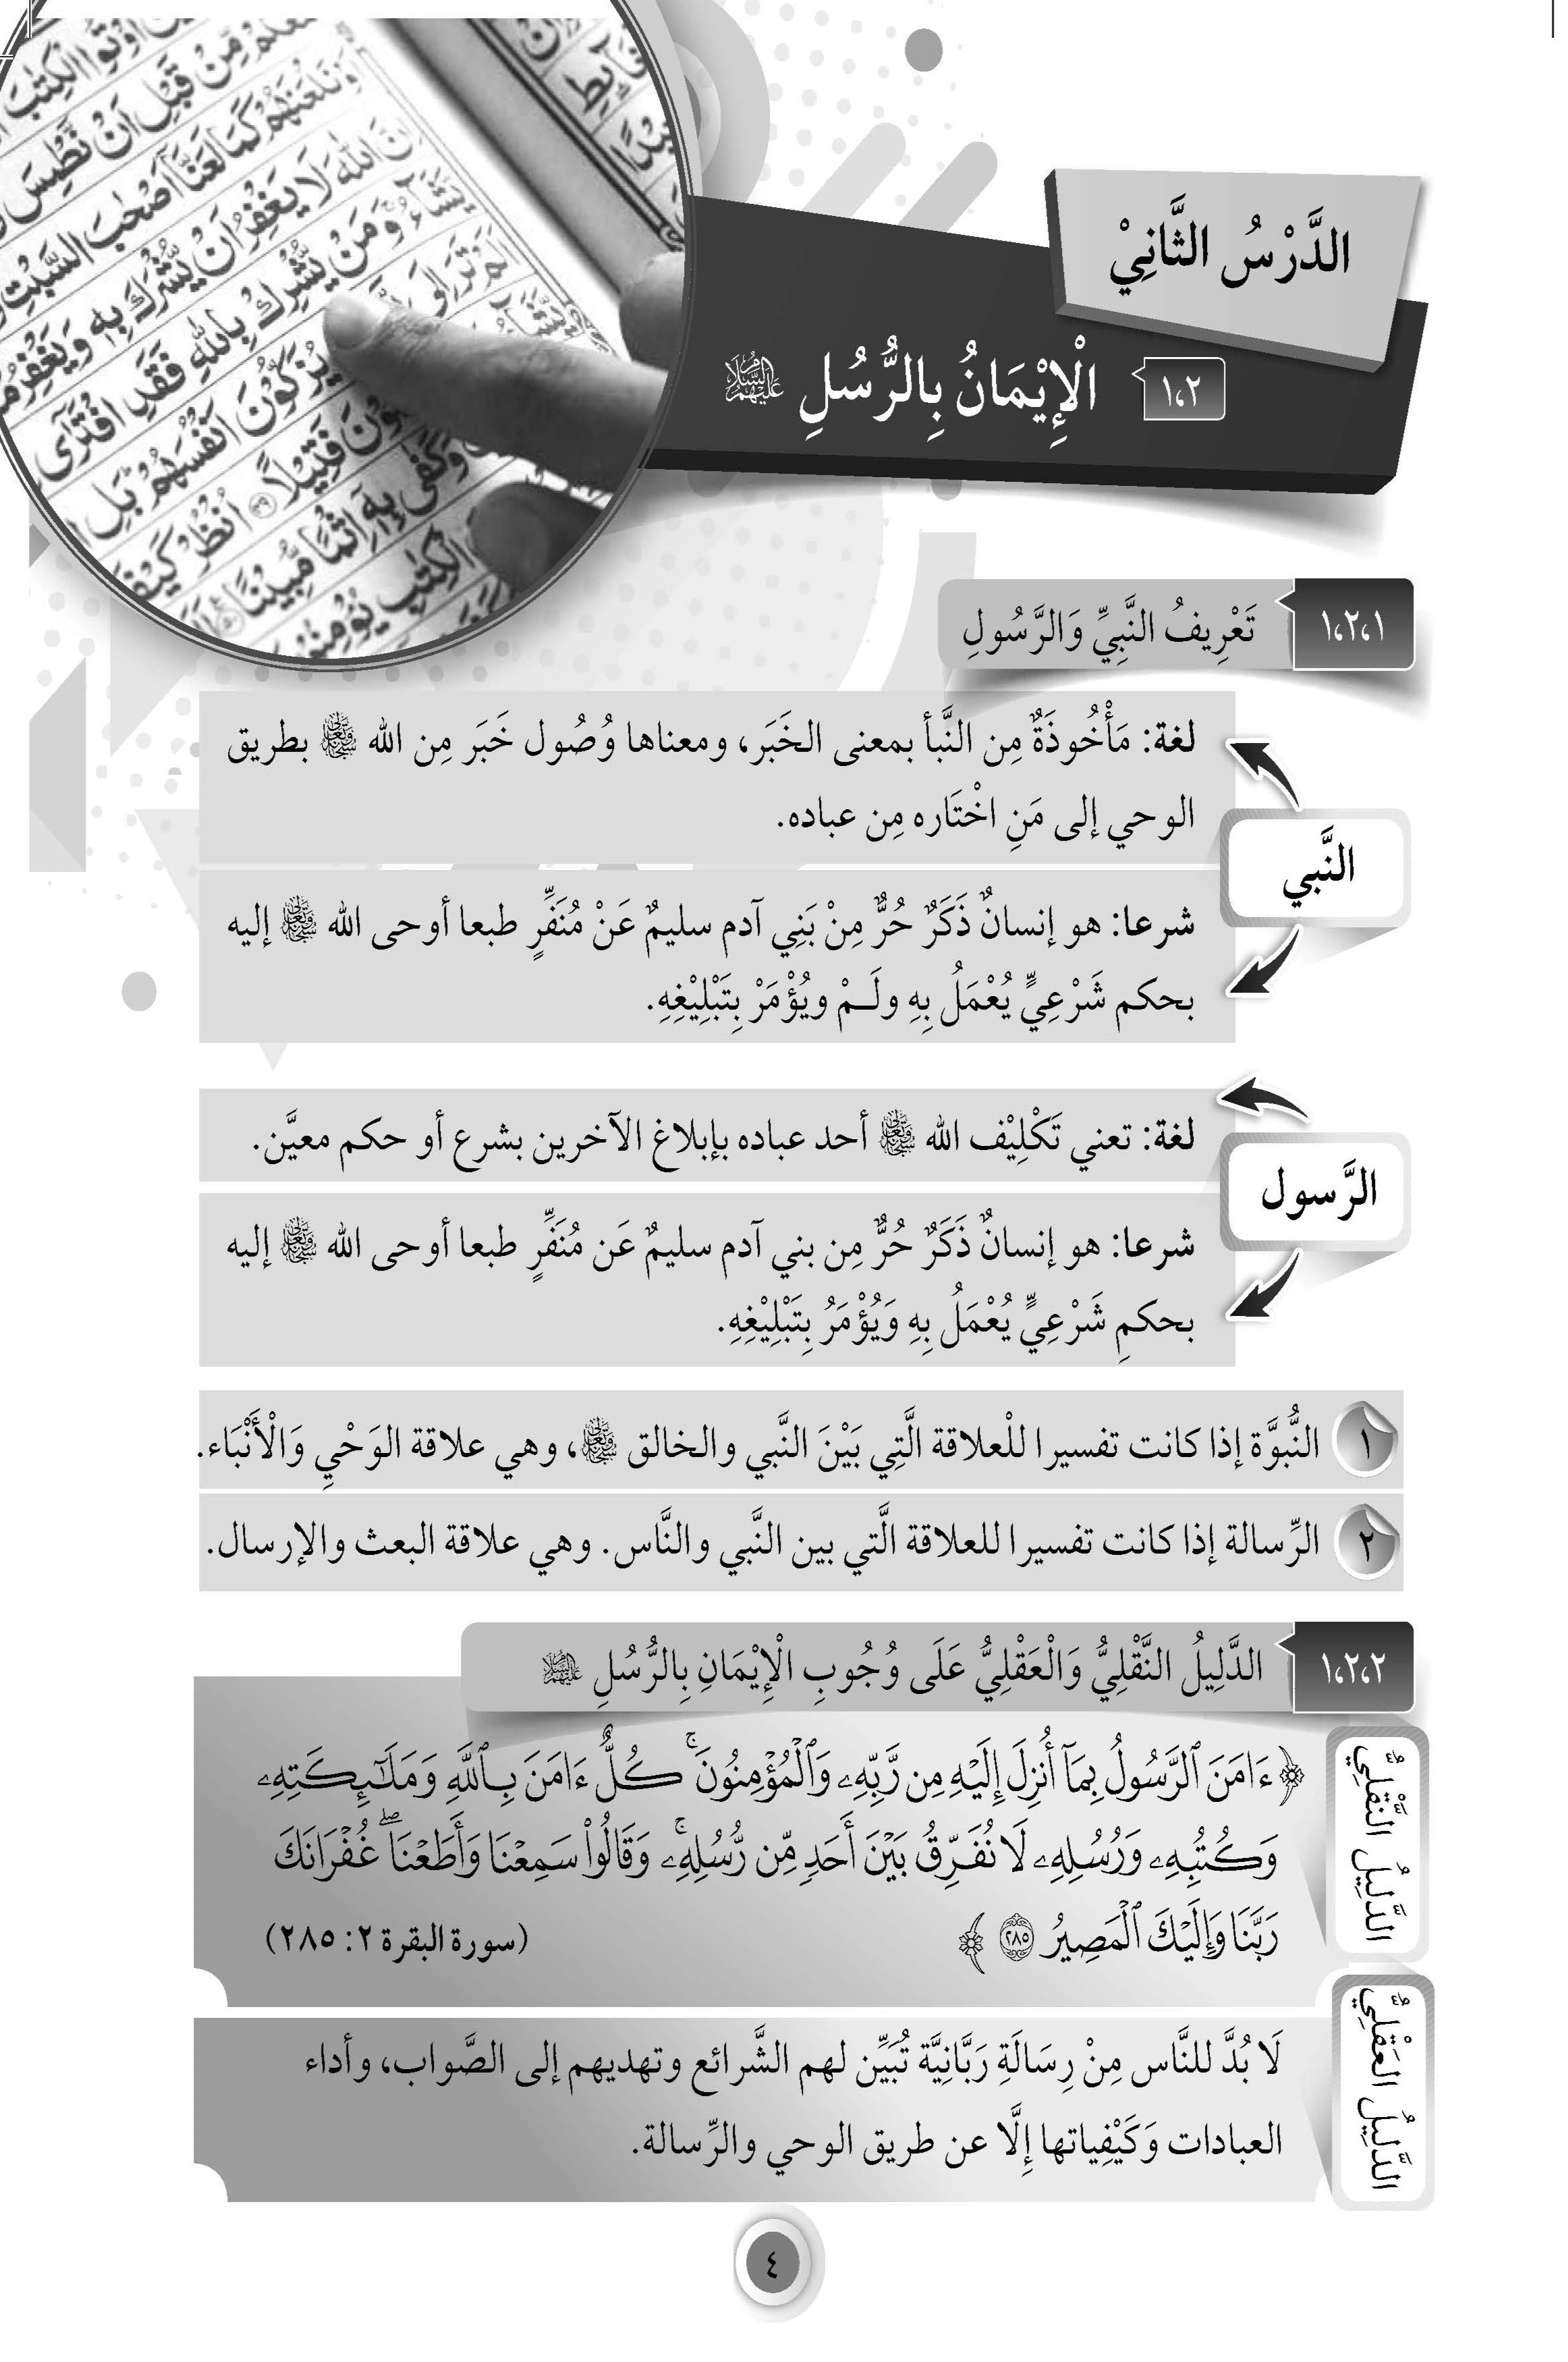 الدَّرْسُ الثَّانِيْ
١،٢ الْإِيْمَانُ بِالرُّسُلِ عَلَيْهِمُ السَّلَامُ
١،٢،١ تَعْرِيفُ النَّبِيِّ وَالرَّسُولِ
النَّبي
لغة: مَأْخُوذَةٌ مِن النَّبأ بمعنى الخَبَر، ومعناها وُصُول خَبَر مِن الله ﷾ بطريق
الوحي إلى مَنِ اخْتَاره مِن عباده.
شرعا: هو إنسانٌ ذَكَرٌ حُرٌّ مِنْ بَنِي آدم سليمٌ عَنْ مُنَفِّرٍ طبعا أوحى الله ﷾ إليه
بحكم شَرْعِيٍّ يُعْمَلُ بِهِ ولَـمْ ويُؤْمَرْ بِتَبْلِيْغِهِ.
الرَّسول
لغة: تعني تَكْلِيْف الله ﷾ أحد عباده بإبلاغ الآخرين بشرع أو حكم معيَّن.
شرعا: هو إنسانٌ ذَكَرٌ حُرٌّ مِن بني آدم سليمٌ عَن مُنَفِّرٍ طبعا أوحى الله ﷾ إليه
بحكمِ شَرْعِيٍّ يُعْمَلُ بِهِ وَيُؤْمَرُ بِتَبْلِيْغِهِ.
١ النُّبوَّة إذا كانت تفسيرا للْعلاقة الَّتِي بَيْنَ النَّبي والخالق ﷾، وهي علاقة الوَحْيِ وَالْأَنْبَاء.
٢ الرِّسالة إذا كانت تفسيرا للعلاقة الَّتي بين النَّبي والنَّاس. وهي علاقة البعث والإرسال.
١،٢،٢ الدَّلِيلُ النَّقْلِيُّ وَالْعَقْلِيُّ عَلَى وُجُوبِ الْإِيْمَانِ بِالرُّسُلِ عَلَيْهِمُ السَّلَامُ
الدَّلِيلُ النَّقْلِيُّ
﴿ءَامَنَ ٱلرَّسُولُ بِمَآ أُنزِلَ إِلَيْهِ مِن رَّبِّهِۦ وَٱلْمُؤْمِنُونَۚ كُلٌّ ءَامَنَ بِٱللَّهِ وَمَلَـٰٓئِكَتِهِۦ
وَكُتُبِهِۦ وَرُسُلِهِۦ لَا نُفَرِّقُ بَيْنَ أَحَدٍ مِّن رُّسُلِهِۦۚ وَقَالُوا۟ سَمِعْنَا وَأَطَعْنَاۖ غُفْرَانَكَ
رَبَّنَا وَإِلَيْكَ ٱلْمَصِيرُ ٢٨٥﴾ (سورة البقرة ٢: ٢٨٥)
الدَّلِيلُ العَقْلِيُّ
لَا بُدَّ للنَّاس مِنْ رِسَالَةِ رَبَّانِيَّة تُبَيِّن لهم الشَّرائع وتهديهم إلى الصَّواب، وأداء
العبادات وَكَيْفِياتها إِلَّا عن طريق الوحي والرِّسالة.
٤